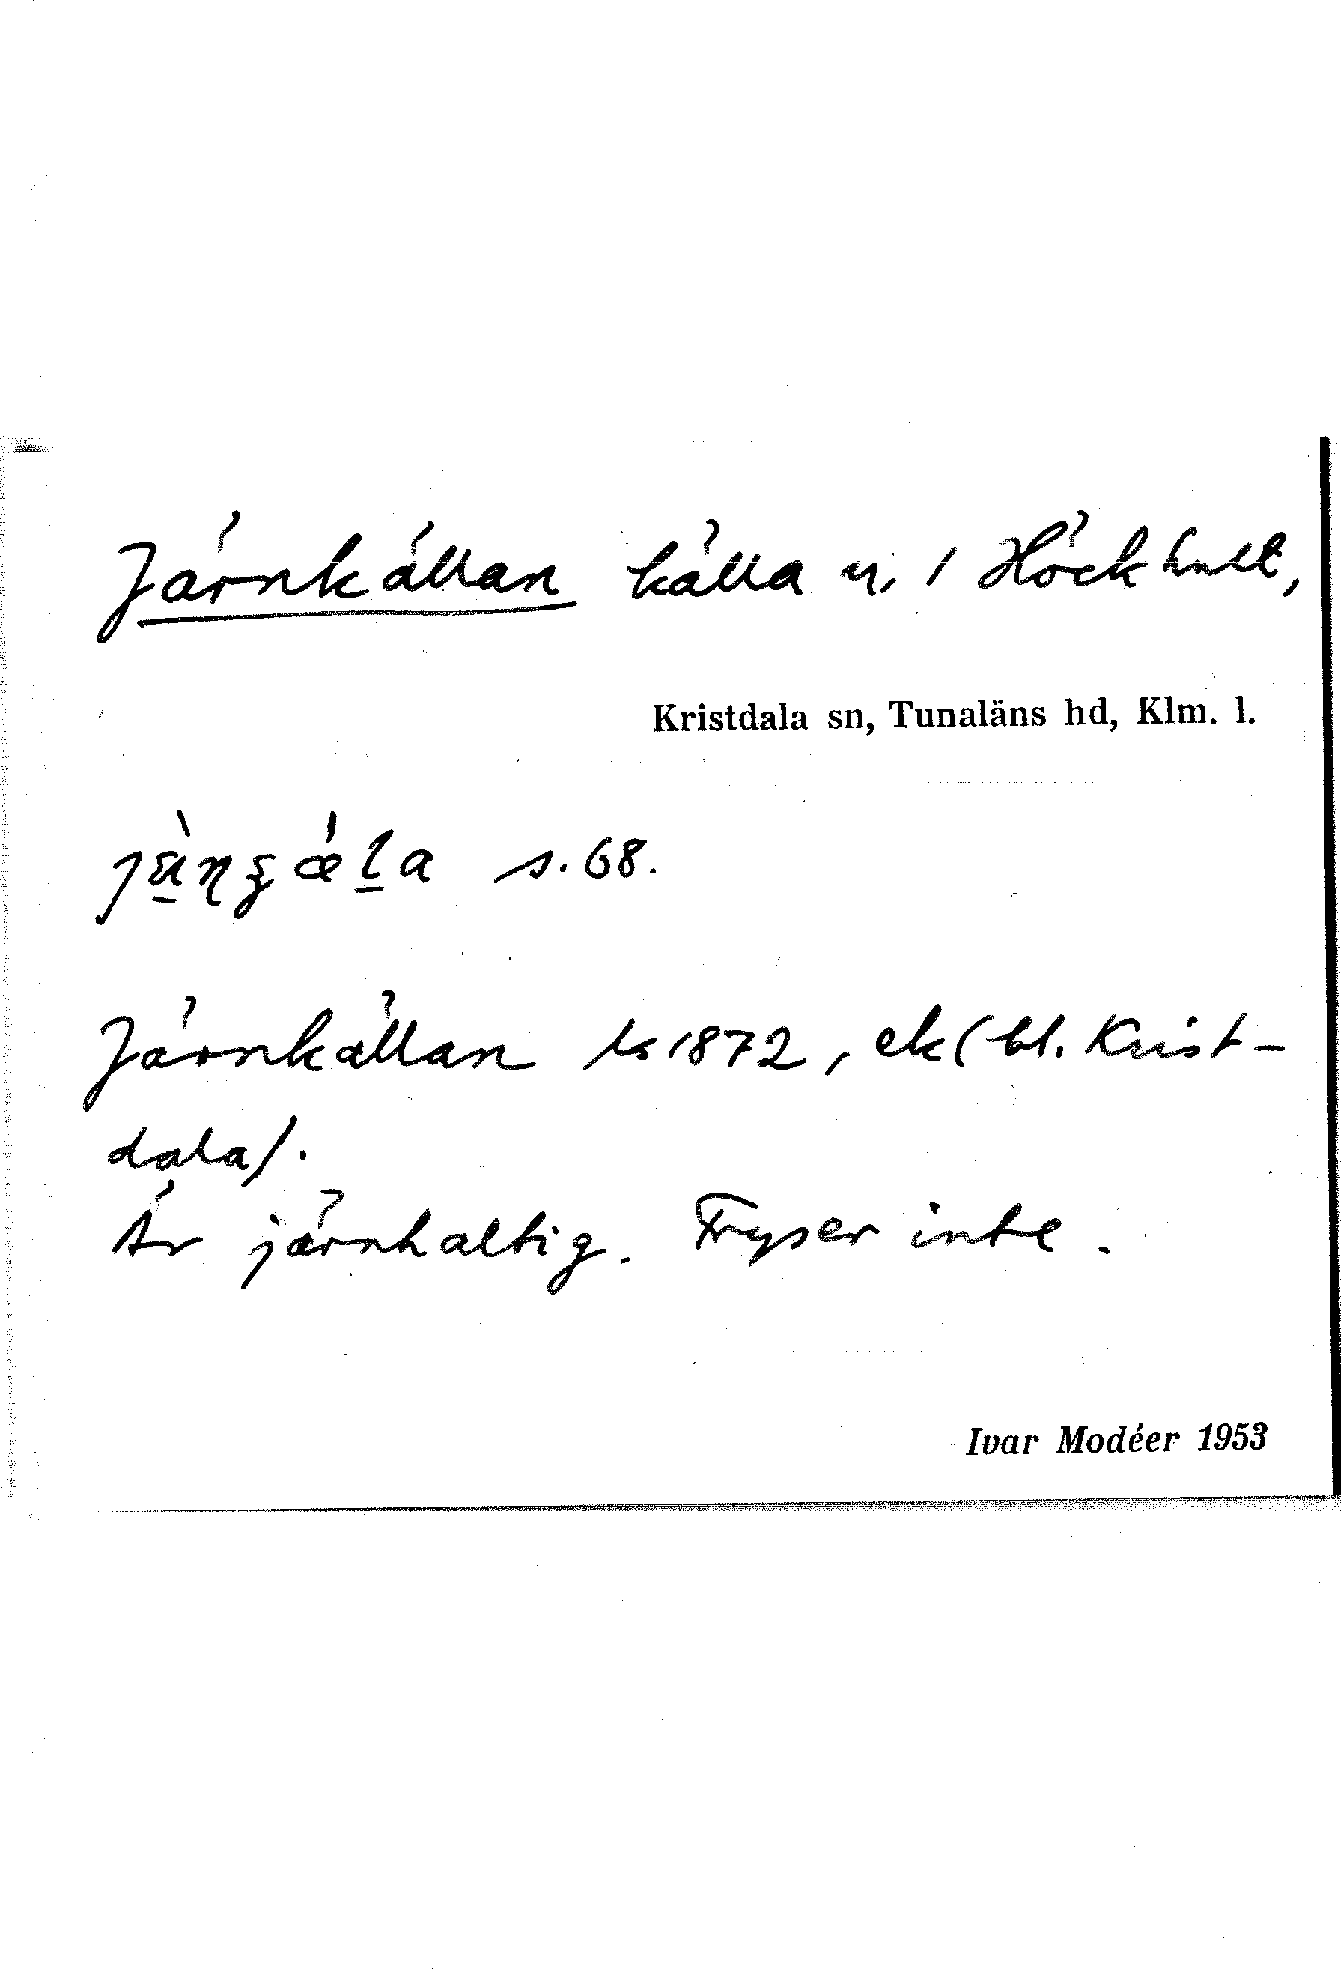 Järnkällan källa n. 1 Höckhult,
Kristdala sn, Tunaläns hd, Klm. l.
s. 68.
Järnkällan ls 1872, ek (bl. Krist-
dala).
Är järnhaltig. Fryser inte.
Ivar Modéer 1953